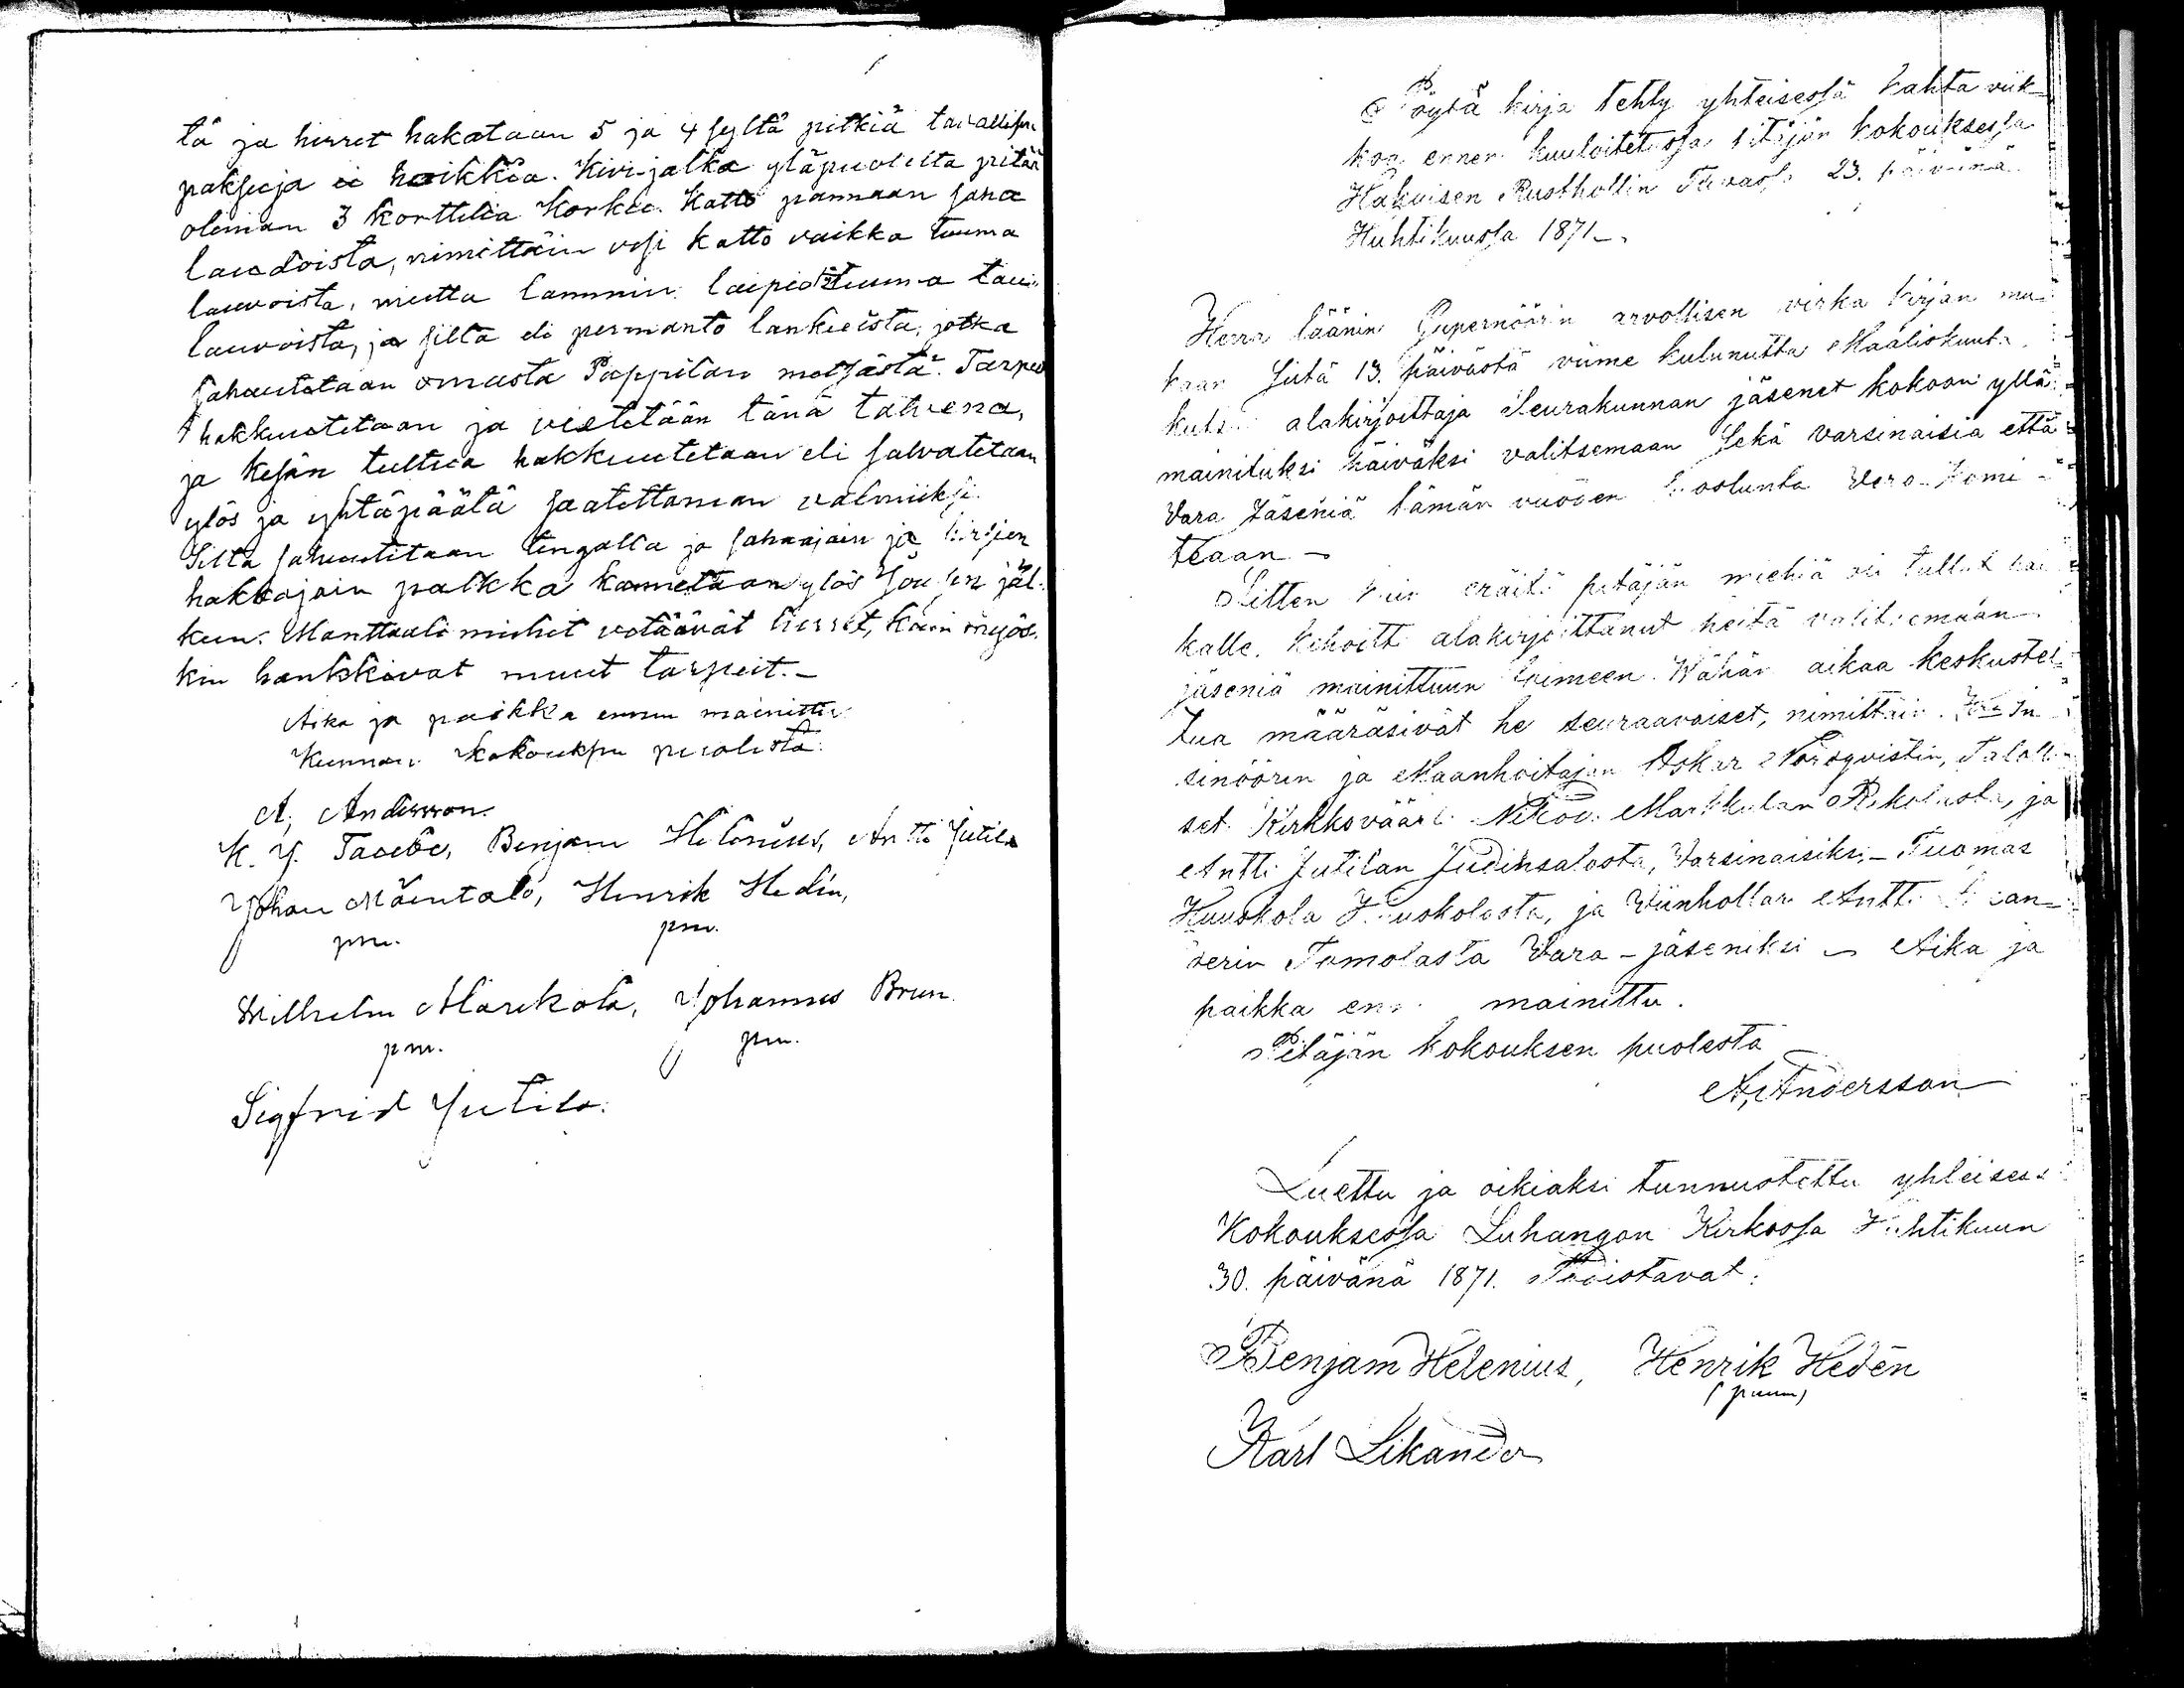 tä ja hirret hakataan 5 ja 4 syltä pitkiä tavallisen
paksuja ei hoikkia. Kivi-jalka yläpuolelta pitää
oleman 3 korttelia korkia. Katto pannaan saha
laudoista, nimittäin vesi katto vaikka tuuma
lauvoista, mutta lammin laipio tuuma
lauvoista, ja silta eli permanto lankuista, jotka
sahautetaan omasta Pappilan metsästä. Tarpeet
hakkuutetaan ja vietetään tänä talvena,
ja kesän tultua hakkuutetaan eli salvatetaan
ylös ja yhtäpäätä saatettaman valmiiksi.
Silta sahautetaan tingalla ja sahaajain ja hirsien
hakkajain palkka kannetaan ylös jousen jäl-
keen. Manttaali miehet vetäävät hirret, kuin myös-
kin hankkivat muut tarpeit. -
Aika ja paikka ennen mainittu
Kunnan kokouksen puolesta:
A. Andersson.
K. J. Tacebe, Benjam Helenius, Antti Jutila
Johan Mäentalo, Henrik Hedén,
pm. pm.
Wilhelm Markola, Johannes Brun
pm. pm.
Sigfrid Jutila.
Pöytä kirja tehty yhteisessä kahta viik-
koa ennen kuuloitetussa pitäjän kokouksessa
Hakuisen Rusthollin Tuvassa 23. päivänä
Huhtikuussa 1871. -
Herra läänin Gupernöörin arvollisen virka kirjan mu-
kaan siitä 13. päivästä viime kulunutta Maaliskuuta
kutsui alakirjoittaja Seurakunnan jäsenet kokoon yllä
mainituksi päiväksi valitsemaan sekä varsinaisia että
Vara Jäseniä tämän vuoden Suostunta Vero-komi-
teaan -
Sitten kuin eräitä pitäjän miehiä oli tullut sai-
kalle, kehoitti alakirjoittanut heitä valitsemaan
jäseniä mainittuun toimeen. Wähän aikaa keskustel-
tua määräsivät he seuraavaiset, nimittäin: In-
sinöörin ja Maanhoitajan Oskar Norqvistin, Talolli-
set Kirkkoväärti Nikod. Markkulan Rekolasta, ja
Antti Jutilan Judinsalosta, Varsinaisiksi - Tuomas
Kuuskola Kuuskolasta, ja Wänhollari Antti
derin Tamolasta Vara-jäseniksi - Aika ja
paikka enn. mainittu.
Pitäjän kokouksen puolesta
A. Andersson
Luettu ja oikiaksi tunnustettu yhteisessä
Kokouksessa Luhangon Kirkossa Huhtikuun
30. päivänä 1871. Todistavat:
Benjam Helenius, Henrik Hedén
(puum)
Karl Sikander